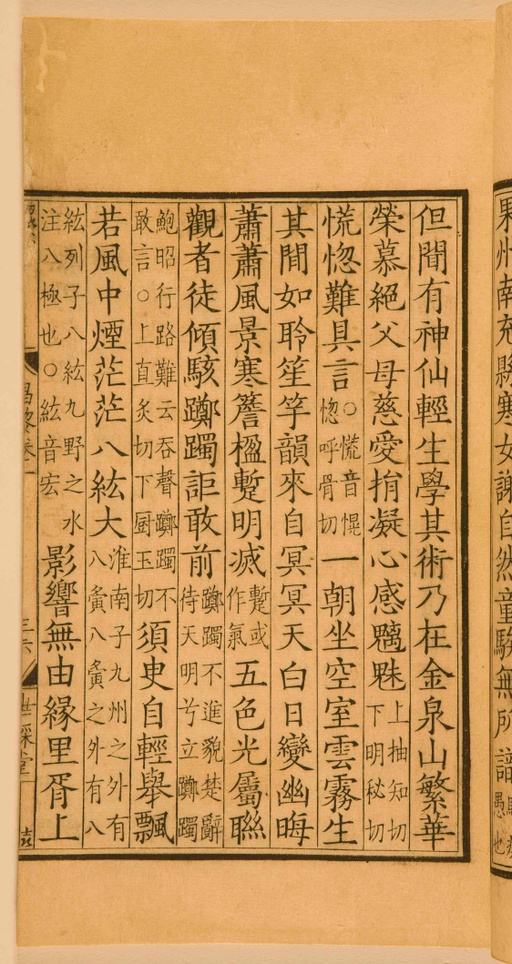 果州南充縣寒女謝自然童騃無所識
但聞有神仙輕生學其術乃在金泉山繁華
榮慕絕父母慈愛捐凝心感魑魅上抽知切下明秘切
慌惚難具言○慌音愰惚呼骨切一朝坐空室雲霧生
其間如聆笙竽韻來自冥冥天白日變幽晦
蕭蕭風景寒簷楹蹔明滅蹔或作氣五色光屬聯
觀者徒傾駭躑躅詎敢前躑躅不進貌楚辭待天明兮立躑躅
鮑昭行路難云吞聲躑躅不敢言○上直炙切下厨玉切須臾自輕舉飄
若風中煙茫茫八紘大淮南子九州之外有八夤八夤之外有八
紘列子八紘九野之水注八極也○紘音宏影響無由緣里胥上
昌黎卷一
世綵堂